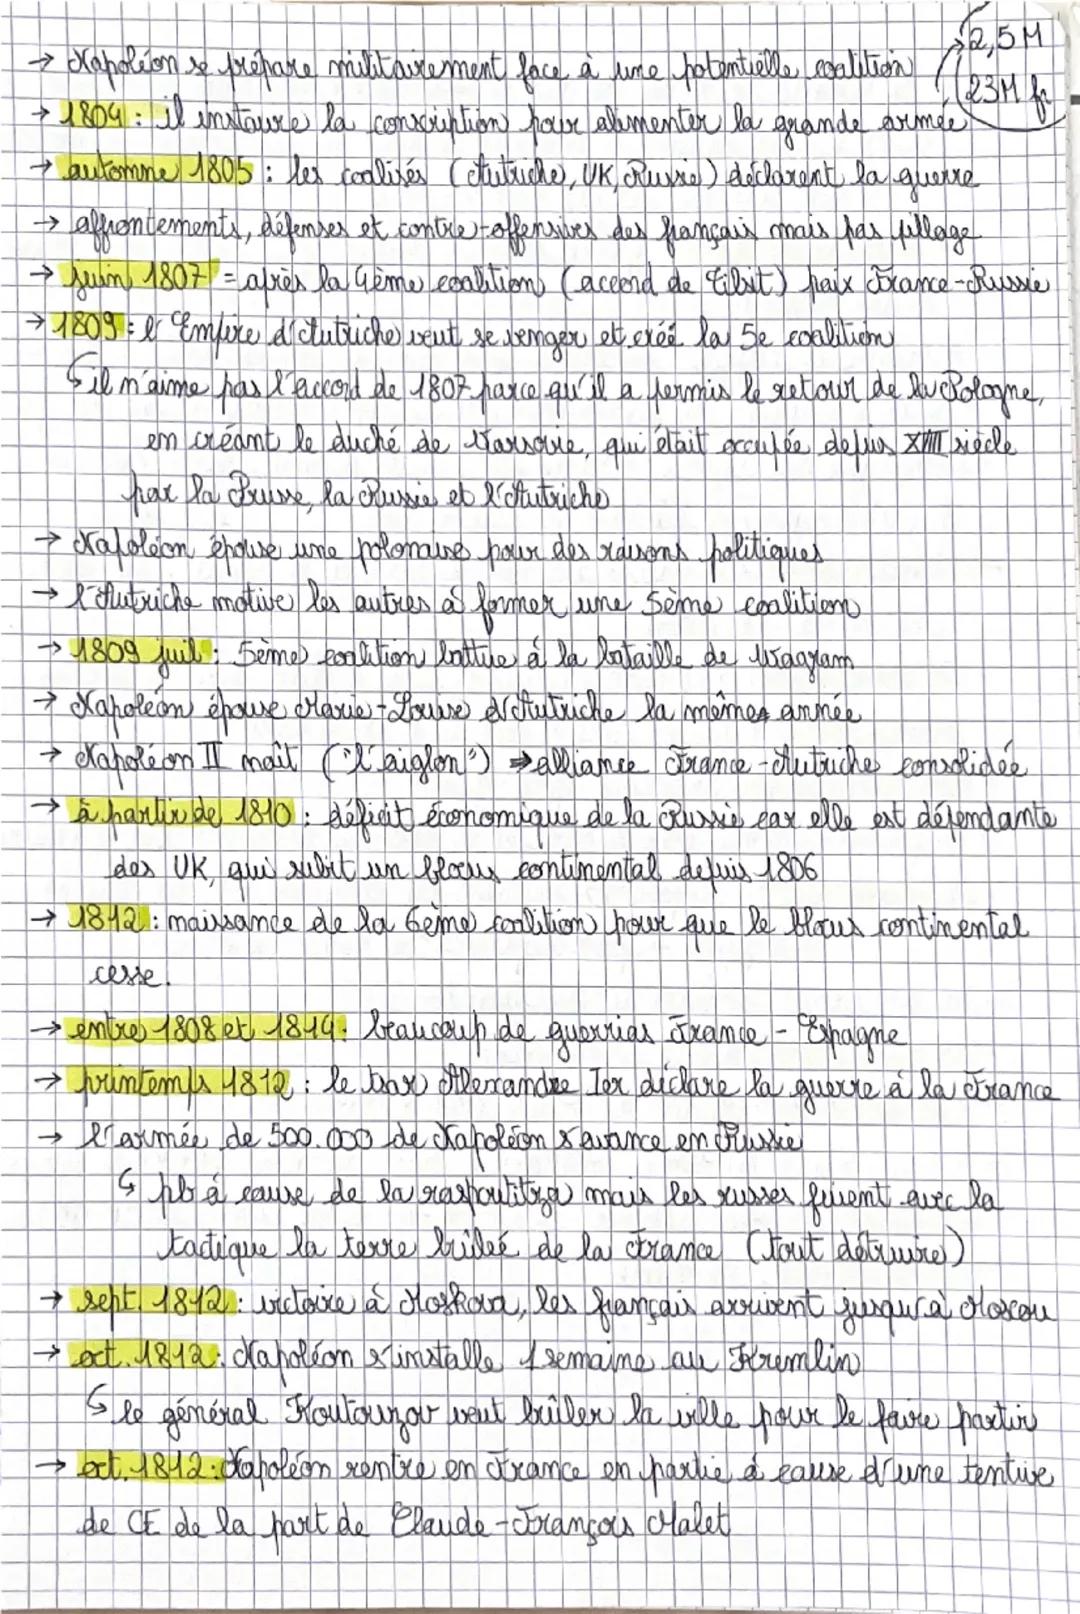 → 2,5M
→ Napoléon se prépare militairement face à une potentielle coalition
23M fr
→ 1804 : il instaure la conscription pour alimenter la grande armée
→ automne 1805 : les coalisés (Autriche, UK, Russie) déclarent la guerre
→ affrontements, défenses et contre-offensives des français mais pas pillage
→ juin 1807 = après la 4ème coalition (accord de Tilsit) paix France-Russie
→ 1809 : l'Empire d'Autriche veut se venger et créé la 5e coalition
↳ il n'aime pas l'accord de 1807 parce qu'il a permis le retour de la Pologne,
en créant le duché de Varsovie, qui était occupée depuis XVIII siècle
par la Prusse, la Russie et l'Autriche
→ Napoléon épouse une polonaise pour des raisons politiques
→ l'Autriche motive les autres à former une 5ème coalition
→ 1809 juil : 5ème coalition battue à la bataille de Wagram
→ Napoléon épouse Marie-Louise d'Autriche la même année
→ Napoléon II naît ("l'aiglon") ⇒ alliance France-Autriche consolidée
→ à partir de 1810 : déficit économique de la Russie car elle est dépendante
des UK, qui subit un blocus continental depuis 1806
→ 1812 : naissance de la 6ème coalition pour que le blocus continental
cesse.
→ entre 1808 et 1814 : beaucoup de guerrias France - Espagne
→ printemps 1812 : le tsar Alexandre Ier déclare la guerre à la France
→ l'armée de 500.000 de Napoléon s'avance en Russie
↳ pb à cause de la raspoutitsa mais les russes fuient avec la
tactique la terre brûleé de la France (tout détruire)
→ sept. 1812 : victoire à Moskova, les français arrivent jusqu'à Moscou
→ oct. 1812 : Napoléon s'installe 1 semaine au Kremlin
↳ le général Koutouzov veut brûler la ville pour le faire partir
→ oct. 1812 : Napoléon rentre en France en partie à cause d'une tentive
de CE de la part de Claude-François Malet